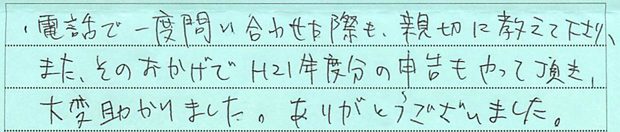 ・電話で一度問い合わせた際も、親切に教えて下さり、
また、そのおかげでH21年度分の申告もやって頂き、
大変助かりました。ありがとうございました。